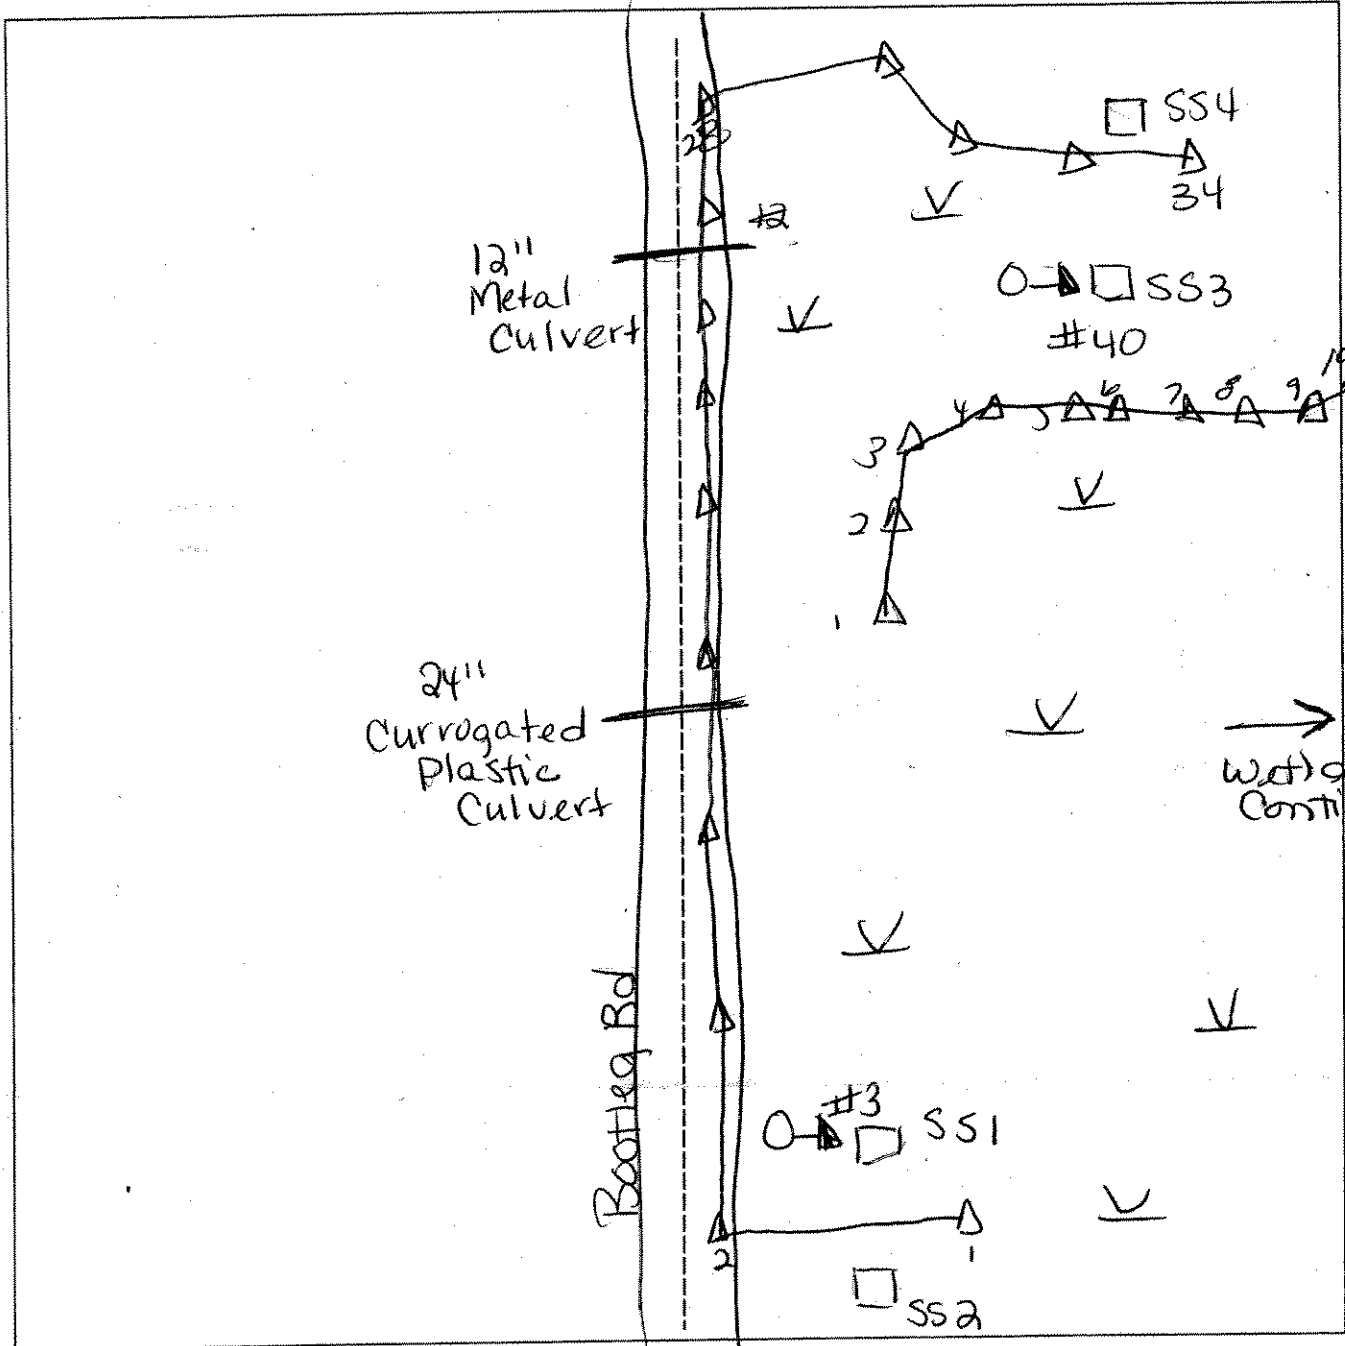 SS4
34
12"
Metal
Culvert
SS3
#40
1
2
3
4
5
6
7
8
9
24"
Currogated
Plastic
Culvert
Bootleg Rd
#3
SS1
2
1
SS2